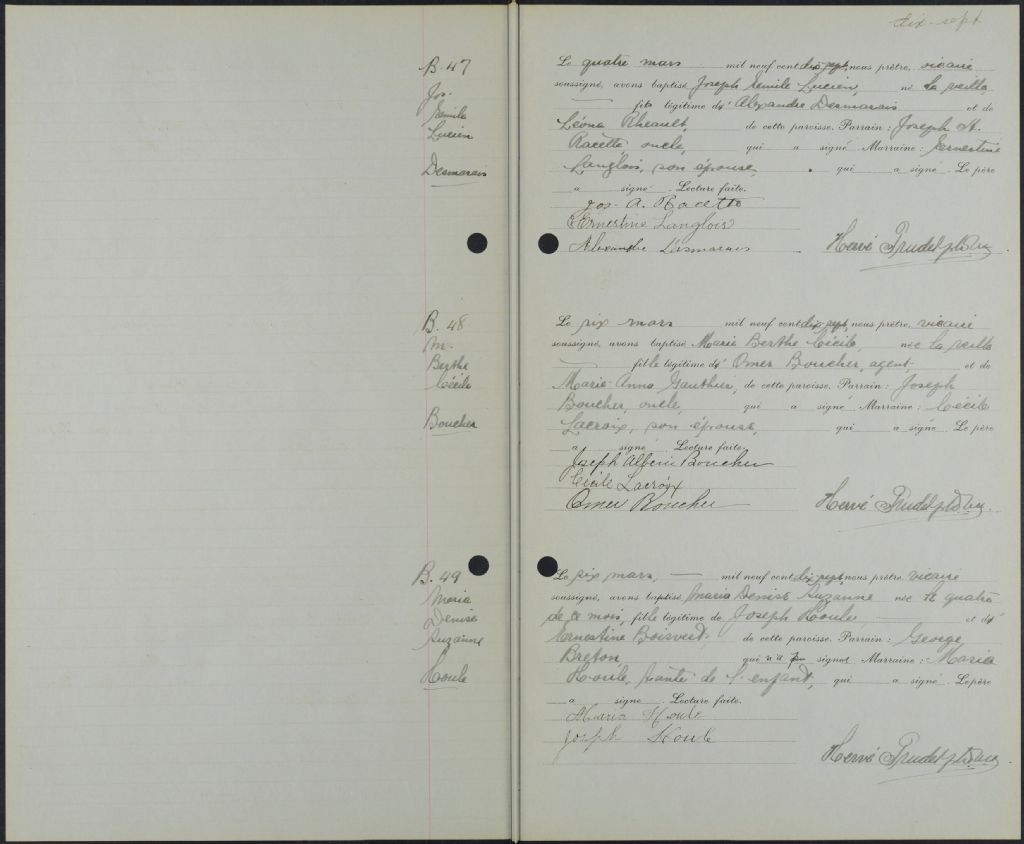 dix-sept
B. 47
Jos.
Emile
Lucien
Desmarais
Le quatre mars mil neuf cent dix sept, nous prêtre, vicaire
soussigné, avons baptisé Joseph Emile Lucien, né la veille
fils légitime d' Alexandre Desmarais et de
Léona Rheault, de cette paroisse. Parrain : Joseph
Racette, oncle, qui a signé. Marraine : Ernestine
Langlois, son épouse, qui a signé. Le père
a signé. Lecture faite.
Jos. A. Racette
Ernestine Langlois
Alexandre Desmarais
Hervé Trudel ptre Vic.
B. 48
M.
Berthe
Cécile
Boucher
Le six mars mil neuf cent dix sept, nous prêtre, vicaire
soussigné, avons baptisé Marie Berthe Cécile, née la veille
fille légitime d' Omer Boucher, agent et de
Marie-Anna Gauthier, de cette paroisse. Parrain : Joseph
Boucher, oncle, qui a signé. Marraine : Cécile
Lacroix, son épouse, qui a signé. Le père
a signé. Lecture faite.
Joseph Boucher
Cécile Lacroix
Omer Boucher
Hervé Trudel ptre Vic.
B. 49
Maria
Denise
Suzanne
Houle
Le six mars, mil neuf cent dix sept, nous prêtre, vicaire
soussigné, avons baptisé Maria Denise Suzanne née le quatre
de ce mois, fille légitime de Joseph Houle, et d'
Ernestine Boisvert, de cette paroisse. Parrain : George
Breton, qui n'a pu signer. Marraine : Maria
Houle, tante de l'enfant, qui a signé. Le père
a signé. Lecture faite.
Maria Houle
Joseph Houle
Hervé Trudel ptre Vic.